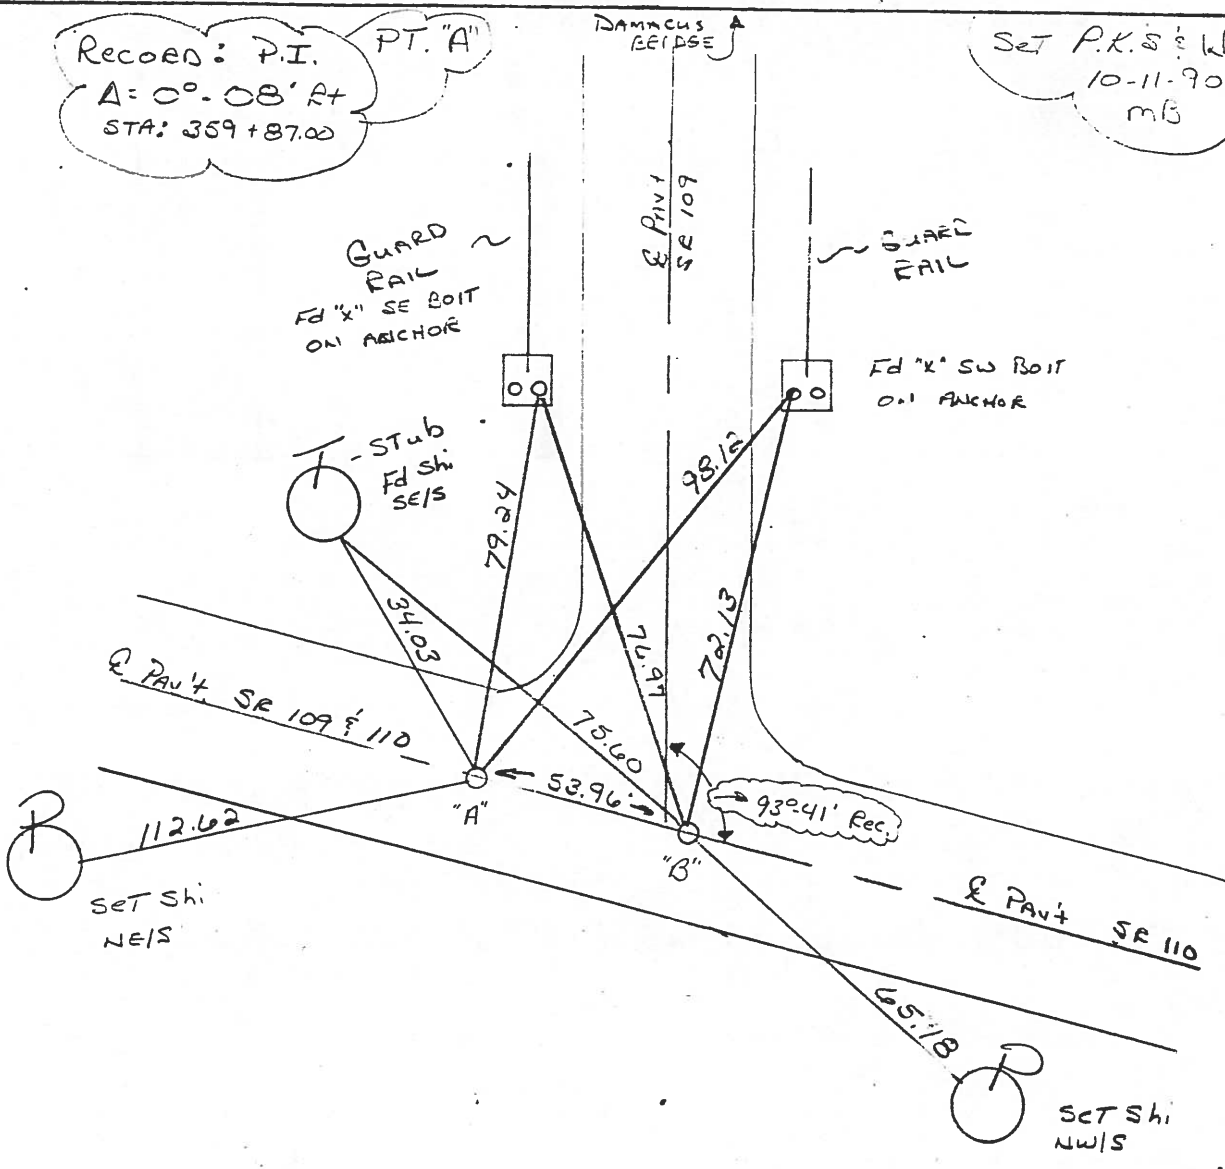 RECORD: P.I.
Δ= 0°-08' Rt
STA: 359+87.00
PT. "A"
DAMACUS
BRIDGE
SET P.K.S &
10-11-90
MB
GUARD
RAIL
Fd "X" SE BOlT
ON ANCHOR
℄ PAV't
SR 109
GUARD
RAIL
Fd "X" SW BOlT
ON ANCHOR
STub
Fd Shi
SE/S
79.24
98.12
34.03
76.97
72.13
℄ PAV't SR 109 & 110
75.60
53.96
"A"
93°-41' Rec.
112.62
"B"
SET Shi
NE/S
℄ PAV't SR 110
65.18
SET Shi
NW/S